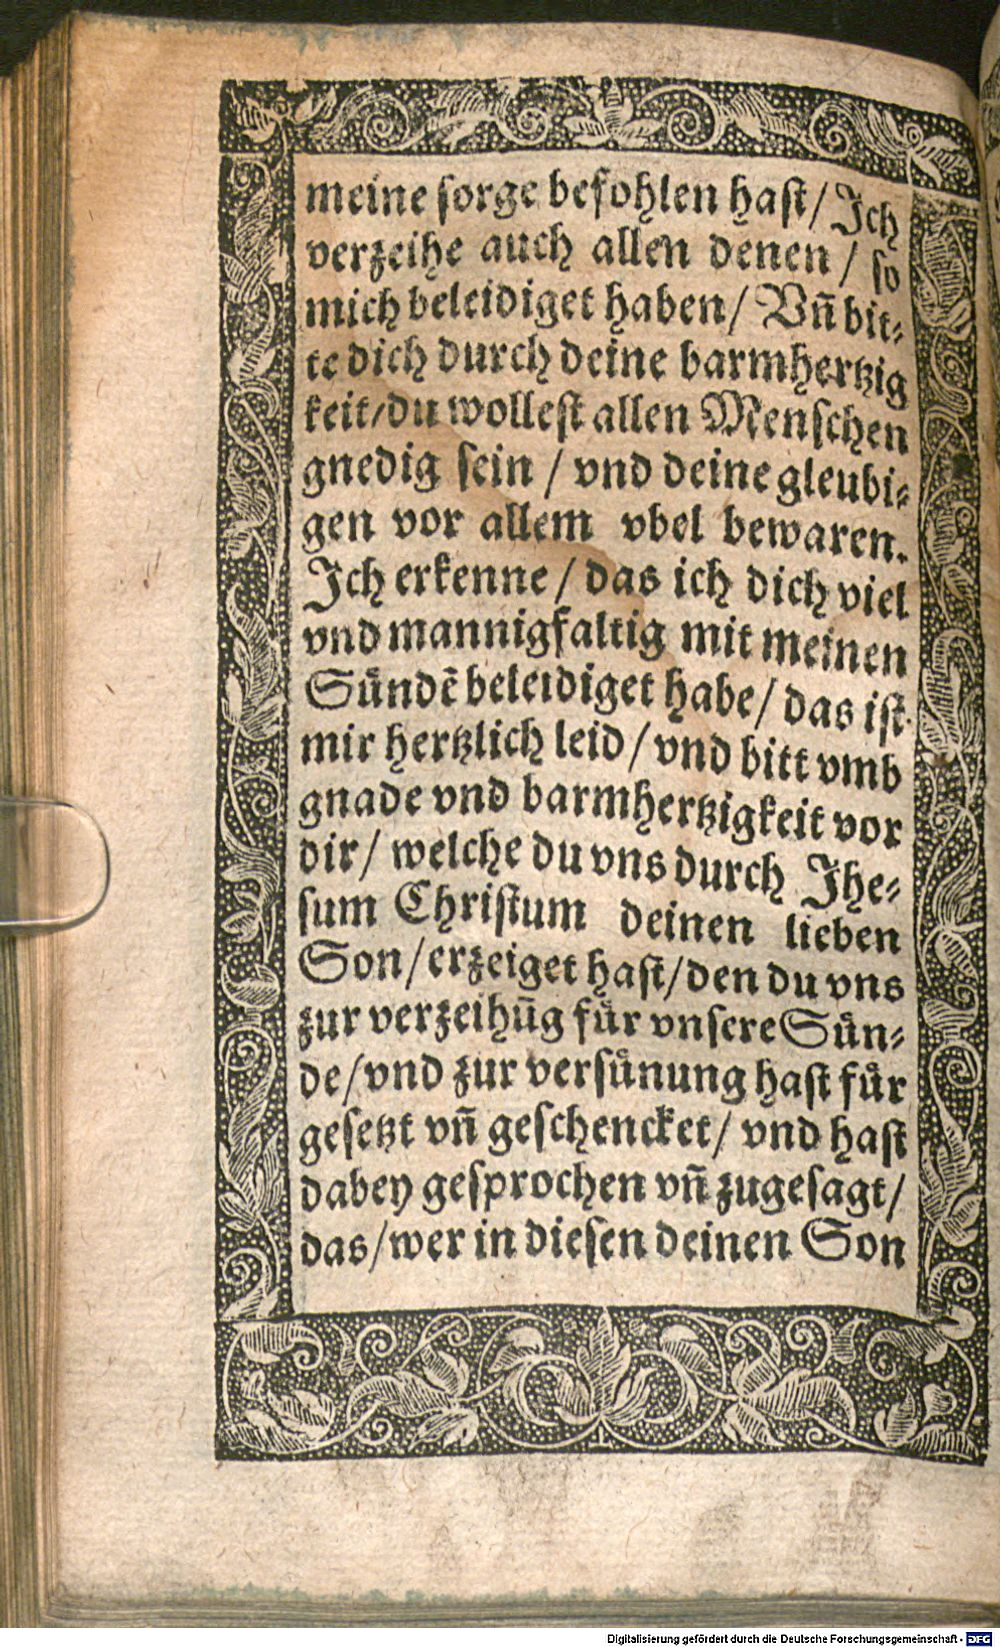 meine ſorge befohlen haſt/ Ich
verzeihe auch allen denen / ſo
mich beleidiget haben/ Vn̄ bit⸗
te dich durch deine barmhertzig
keit/du wolleſt allen Menſchen
gnedig ſein / vnd deine gleubi⸗
gen vor allem vbel bewaren.
Ich erkenne / das ich dich viel
vnd mannigfaltig mit meinen
Suͤndẽ beleidiget habe/ das iſt
mir hertzlich leid/ vnd bitt vmb
gnade vnd barmhertzigkeit vor
dir/ welche du vns durch Jhe⸗
ſum Chriſtum deinen lieben
Son/ erzeiget haſt/ den du vns
zur verzeihūg fuͤr vnſere Suͤn⸗
de/ vnd zur verſuͤnung haſt fuͤr
geſetzt vn̄ geſchencket/ vnd haſt
dabey geſprochen vn̄ zugeſagt/
das/ wer in dieſen deinen Son
Digitalisierung gefördert durch die Deutsche Forschungsgemeinschaft - DFG